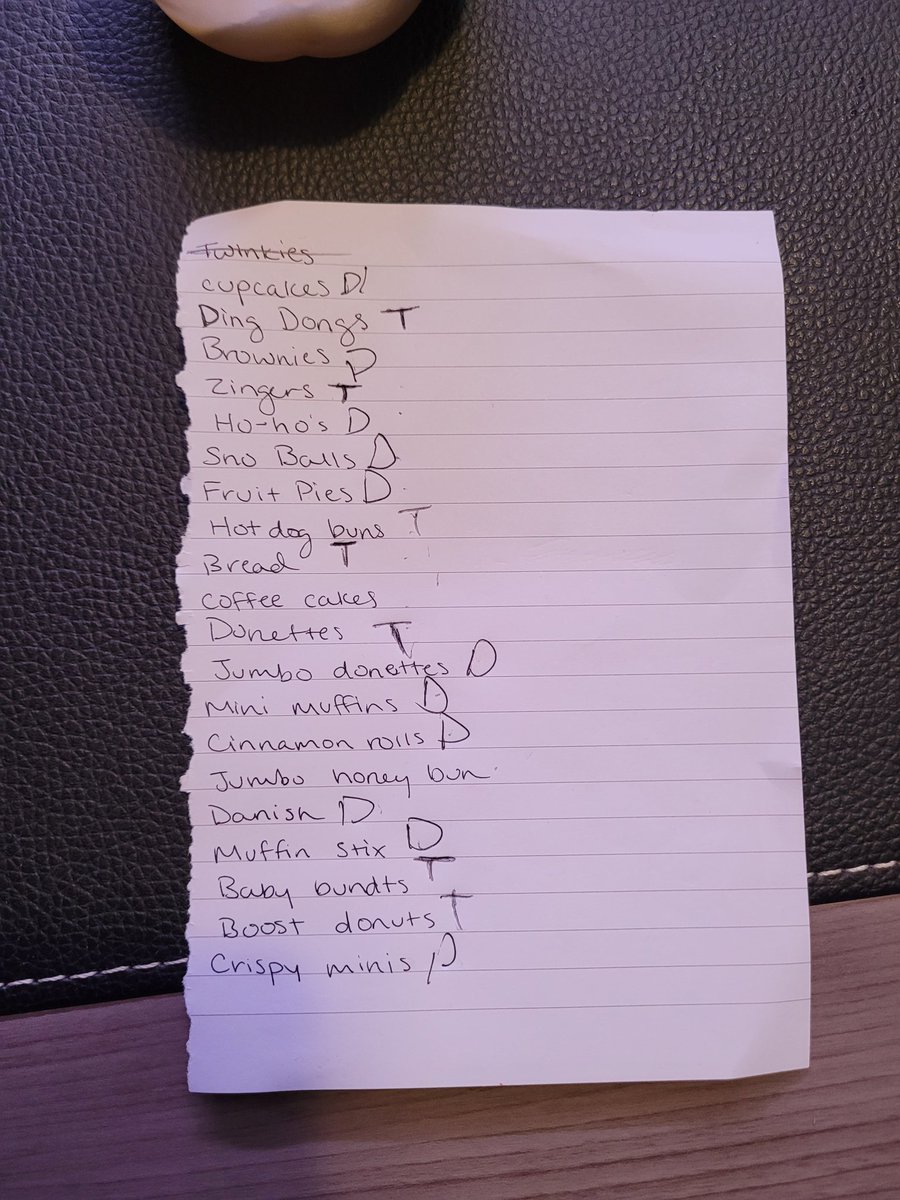 Twinkies
cupcakes D
Ding Dongs T
Brownies D
Zingers T
Ho-ho's D
Sno Balls D
Fruit Pies D
Hot dog buns T
Bread T
coffee cakes
Donettes T
Jumbo donettes D
Mini muffins D
Cinnamon rolls D
Jumbo honey bun
Danish D
Muffin stix D
Baby bundts T
Boost donuts T
Crispy minis D